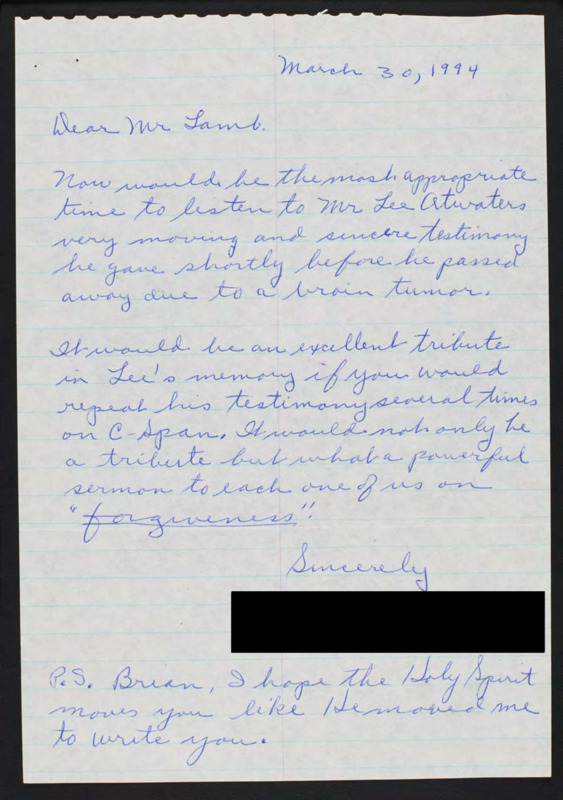 March 30, 1994
Dear Mr Lamb.
Now would be the most appropriate
time to listen to Mr Lee Atwaters
very moving and sincere testimony
he gave shortly before he passed
away due to a brain tumor.
It would be an excellent tribute
in Lee's memory if you would
repeat his testimony several times
on C-Span. It would not only be
a tribute but what a powerful
sermon to each one of us on
"forgiveness"!
Sincerely
P.S. Brian, I hope the Holy Spirit
moves you like He moved me
to write you.